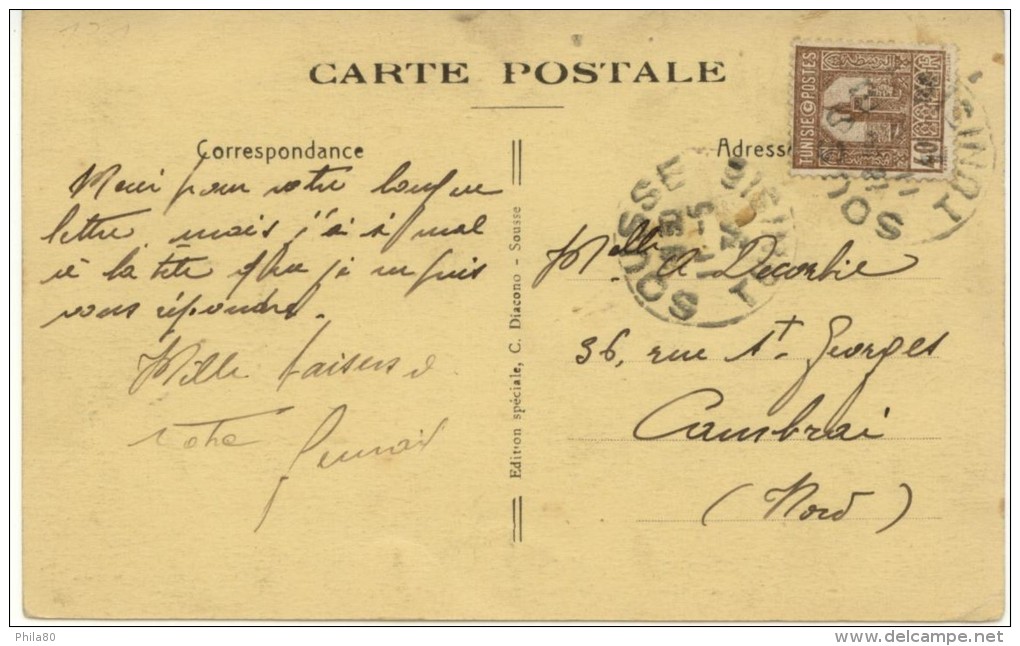 131
CARTE POSTALE
Correspondance
Adresse
TUNISIE POSTES
40
SOUSSE
TUNISIE
SOUSSE
TUNISIE
Merci pour votre longue
lettre, mais j'ai si mal
à la tête que je ne puis
vous répondre.
Mille baisers de
votre
Melle A Decorbie
36, rue St. Georges
Cambrai
(Nord)
Edition spéciale, C. Diacono - Sousse
Phila80
www.delcampe.net